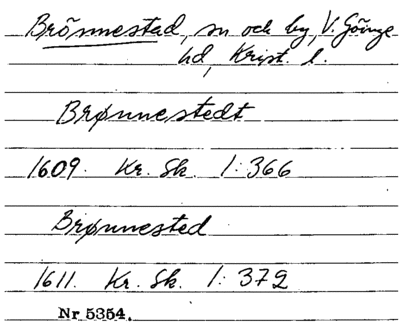 Brönnestad, sn och by, V. Göinge
hd, Krist. l.
Brønnestedt
1609. Kr. Sk. 1:366
Brønnested
1611. Kr. Sk. 1:372
Nr 5354.